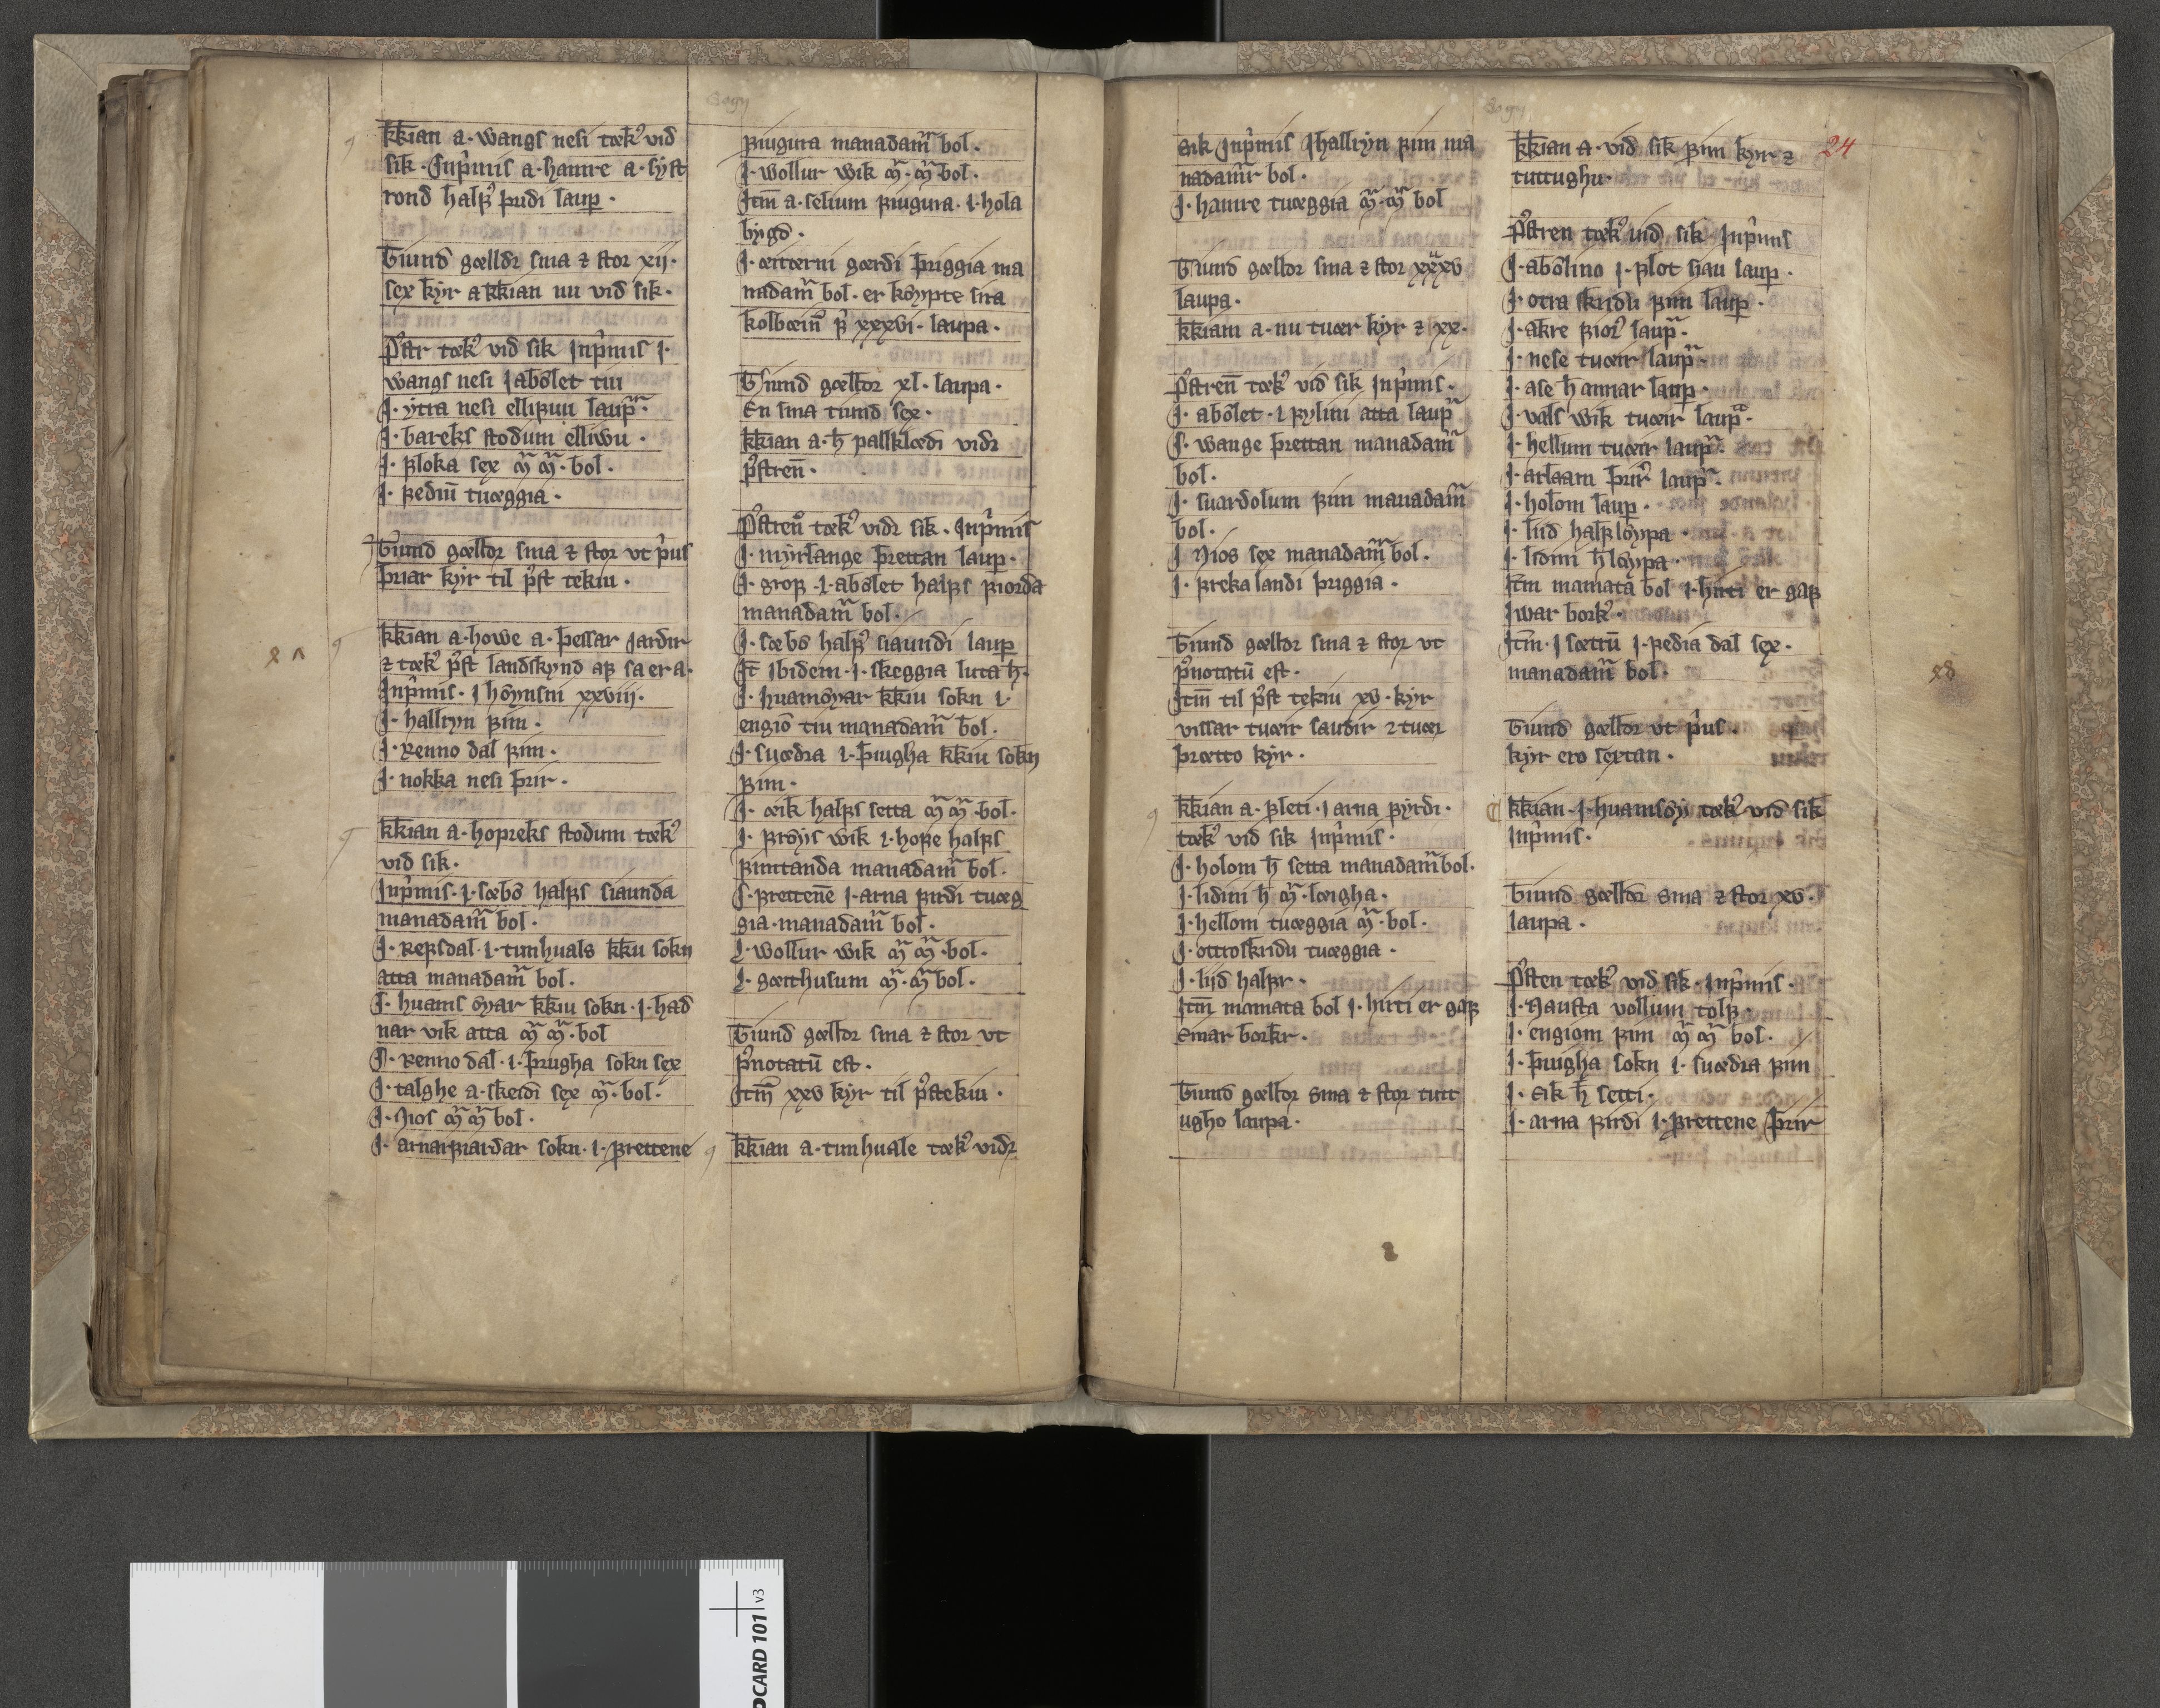 kkian a·wangs nesi tækꝛ vid
sik·Jnpꝛimis a·haure a·syſt
rond halfꝛ þridi laup·
Tiund gælldꝛ sma ⁊ stor xij·
sex kyr a kkian nu vid sik·
Pꝛstr tækꝛ vid sik Jnpꝛimis j·
wangs nesi j abólet tiu
J·ytra nesi ellifuu laupᷓ·
J·bareks stodum elliwu·
J·floka sex m̃ m̃·bol·
J·fediu tuæggia·
Tiund gælldꝛ sma ⁊ stor vt pꝛius
þriar kyr til pꝛst tekiu·
kkian a·howe a·þessar jardir
⁊ tækꝛ pꝛst landskynd af sa er a·
Jnpꝛimis·j hôynsini xxviij·
J·hallryn fim·
J·Renno dal fim·
J·nokka nesi þrir·
kkian a·hopreks stodum tækꝛ
vid sik·
Jnpꝛimis·j·sæbo halfs siaunda
manadamᷓ bol·
J·Refsdal·j·tunhuals kkiu sokn
atta manadamᷓ bol·
J·huams ôyar kkiu sokn·j·had
nar vik atta m̃ m̃·bol
J·Renno dal·j·þrugha sokn sex
J·talghe a·skeidi sex m̃·bol·
J·Nios m̃ m̃ bol·
J·arnarfiardar sokn·j·frettene
fiugura manadamᷓ bol·
J·wollur wik m̃·m̃·bol·
Jtm̃ a·selium fiugura·j·hola
bygd·
J·ættærni gærdi þriggia ma
nadamᷓ bol·er kôypte sira
kolbæinꝛ fꝛ xxxvi·laupa·
Tiund gælldor xl·laupa·
En sma tiund sex·
kkian a·h̄ pallklædi vidꝛ
pꝛstren̄·
Pꝛstrenꝛ tækꝛ vidꝛ sik·Jnpꝛimis
J·myrlange þrettan laup·
J·grof·j·abólet halfs fiorda
manadamᷓ bol·
J·sæbo halfꝛ siaundi laup
Jt̄ ibidem·j·skeggia luta h̄·
J·huamôyar kkiu sokn j·
engio tiu manadamᷓ bol·
J·suædra j·þrugha kkiu sokn
fim·
J·æik halfs setta m̃ m̃·bol·
J·frôys wik j·hope halfs
fimtanda manadamᷓ bol·
J·frettene j·arna firdi tuæg
gia·manadamᷓ bol·
J·wollur wik m̃ m̃·bol·
J·gærthusum m̃·m̃ bol·
Tiund gælldor sma ⁊ stor vt
pꝛnotatū est·
Jtm̃ xxv kyr til pꝛstekiu·
kkian a·tunhuale tækꝛ vidꝛ
sik Jnpꝛimis Jhallryn fim ma
nadamᷓ bol·
J·haure tuæggia m̃·m̃ bol
Tiund gælldor sma ⁊ stor xxxv
laupa·
kkiam a·nu tuær kyr ⁊ xx·
Pꝛstren̄ tækꝛ vid sik Jnpꝛimis·
J·abólet·j fylini atta laupᷓ
J·wange þrettan manadamᷓ
bol·
J·suardolum fim manadamᷓ
bol·
J Nios sex manadamᷓ bol·
J·freka landi þriggia·
Tiund gælldor sma ⁊ stor vt
pꝛnotatū est·
Jtm̃ til pꝛst tekiu xv·kyr
vissar tuæir saudir ⁊ tuær
þrætto kyr·
kkian a·fleti·j arna fyrdi·
tækꝛ vid sik Jnpꝛimis·
J·holom h̄ setta manadamᷓ bol·
J·lidini h̄ m̃·læigha·
J·hellom tuæggia m̃·bol·
J·ottroskridu tuæggia·
J·lijd halfr·
Jtm̃ mamata bol j·hirti er gaf
Einar borkr·
Tiund gælldor sma ⁊ stor tutt
ugho laupa·
24
kkian a·vid sik fim kyr ⁊
tuttughu·
Pꝛstren tækꝛ uid sik·Jnpꝛimis
J·abólino j·flot hau laup·
J·otra skridu fim laup·
J·akre fiorꝛ laupᷓ·
J·nese tuæir laupᷓ·
J·ase h̄ annar laup·
J·vals wik tuæir laupᷓ·
J·hellum tuæir laupᷓ·
J·atlaam þrirꝛ laupᷓ·
J·holom laup·
J·liid halflôypa·
J·lidini h̄ lôypa·
Jtm mamata bol j·hirti er gaf
Jwar borkꝛ·
Jtm̃·j sættū j·fedia dal sex·
manadamᷓ bol·
Tiund gælldor vt pꝛius·
kyr ero sextan·
kkian·j·huamsôy tækꝛ vid sik
Jnpꝛimis·
Tiund gælldor sma ⁊ stor xv·
laupa·
Pꝛsten tækꝛ vid sik·Jnpꝛimis·
J·Nausta vollium tolf·
J·engiom fim m̃ m̃ bol·
J·þrugha sokn j·suædra fim
J·Eik h̄ setti·
J·arna firdi j·frettene þrir